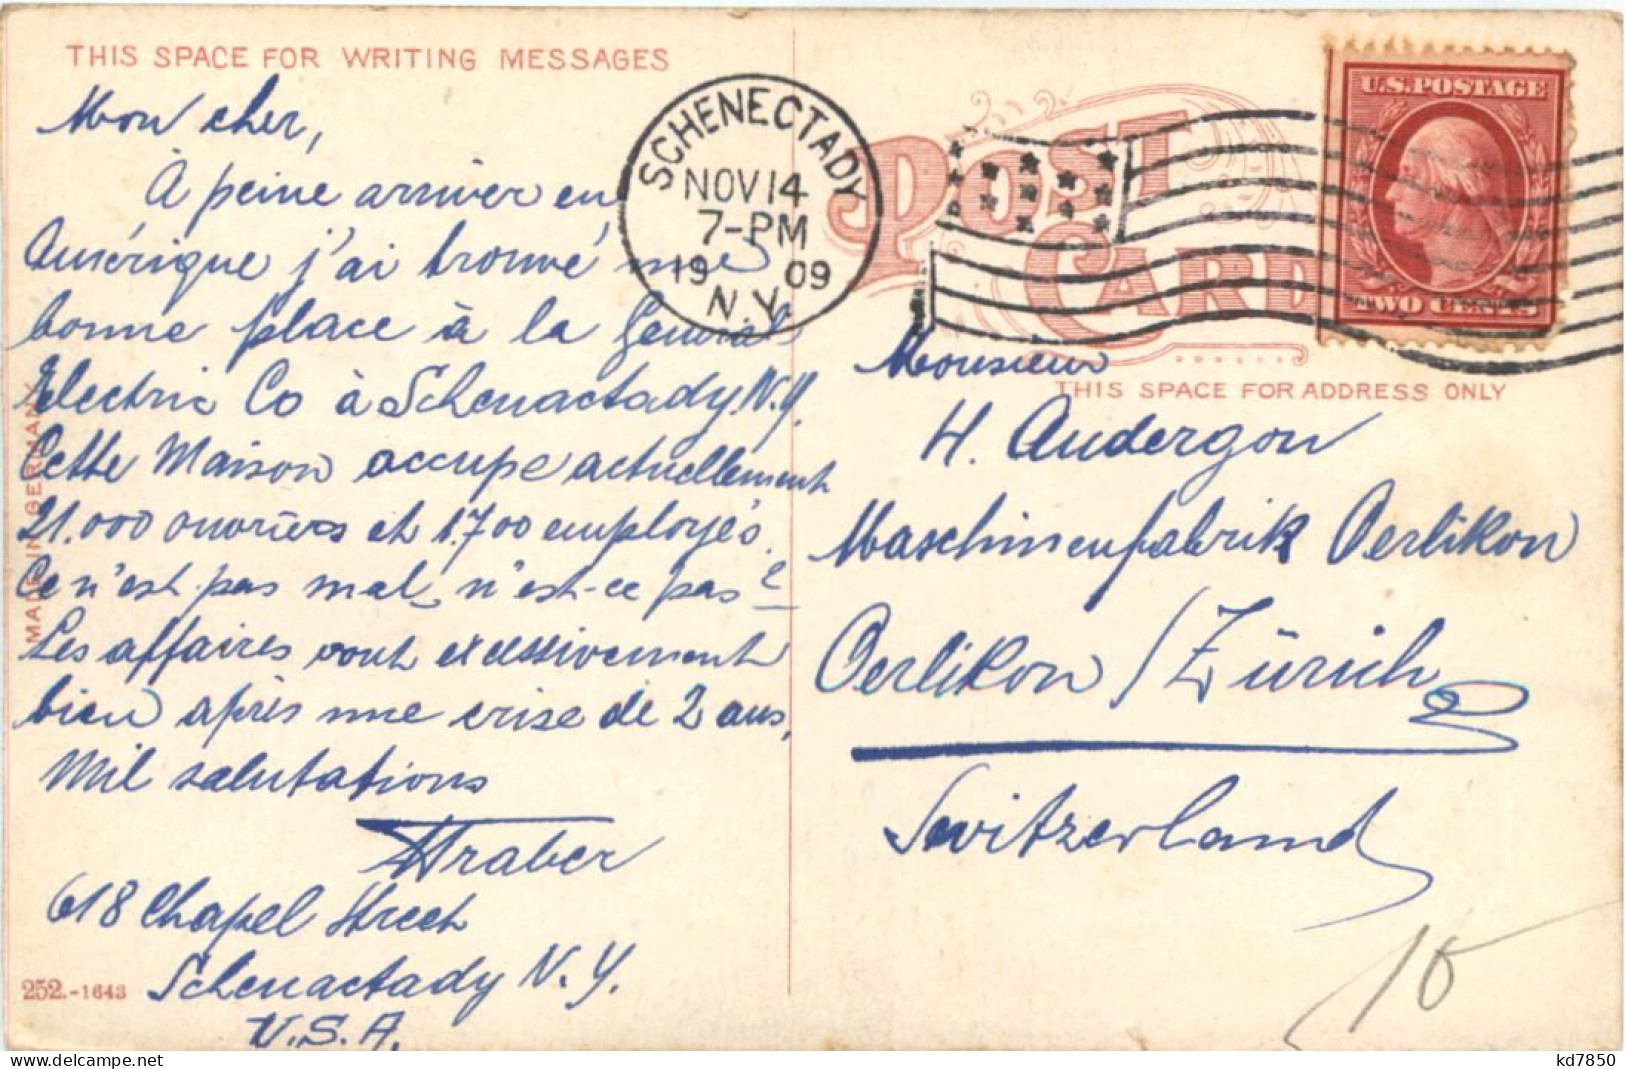 THIS SPACE FOR WRITING MESSAGES
Mon cher,
À peine arriver en
Amérique j'ai trouvé une
bonne place à la General
Electric Co à Schenactady N.Y.
Cette Maison occupe actuellement
21.000 ouvriers et 1.700 employés.
Ce n'est pas mal, n'est-ce pas?
Les affaires vont excessivement
bien après une crise de 2 ans,
Mil salutations
618 Chapel Street
Schenactady N.Y.
U.S.A.
252.-1643
MADE IN GERMANY
SCHENECTADY
NOV 14
7-PM
19 09
N.Y.
POST
CARD
U.S. POSTAGE
TWO CENTS
THIS SPACE FOR ADDRESS ONLY
Monsieur
H. Audergon
Maschinenfabrik Oerlikon
Oerlikon / Zürich
Switzerland
10
kd7850